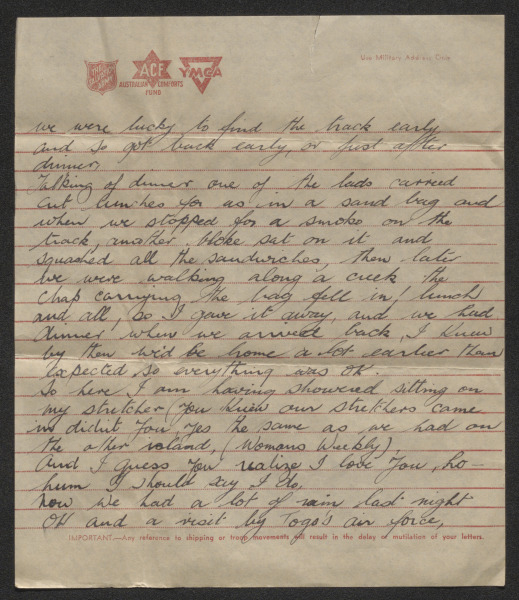 THE SALVATION ARMY
ACF
AUSTRALIAN COMFORTS
FUND
YMCA
Use Military Address Only
we were lucky to find the track early
and so got back early, or just after
dinner,
Talking of dinner one of the lads carried
cut lunches for us in a sand bag and
when we stopped for a smoke on the
track, another bloke sat on it and
squashed all the sandwiches, then later
we were walking along a creek the
chap carrying the bag fell in! lunch
and all, so I gave it away, and we had
dinner when we arrived back, I knew
by then we'd be home a lot earlier than
expected so everything was OK.
So here I am having showered sitting on
my stretcher (you knew our stretchers came
in didn't you, yes the same as we had on
the other island, (Womans Weekly)
And I guess you realize I love you, ho-
hum I should say I do.
Now we had a lot of rain last night
OH and a visit by Togo's air force,
IMPORTANT.—Any reference to shipping or troop movements will result in the delay or mutilation of your letters.